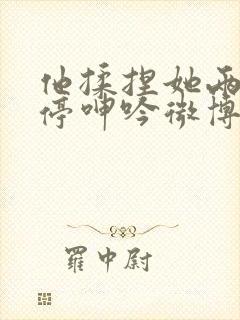 他揉捏她两
停呻吟微博
羅中尉